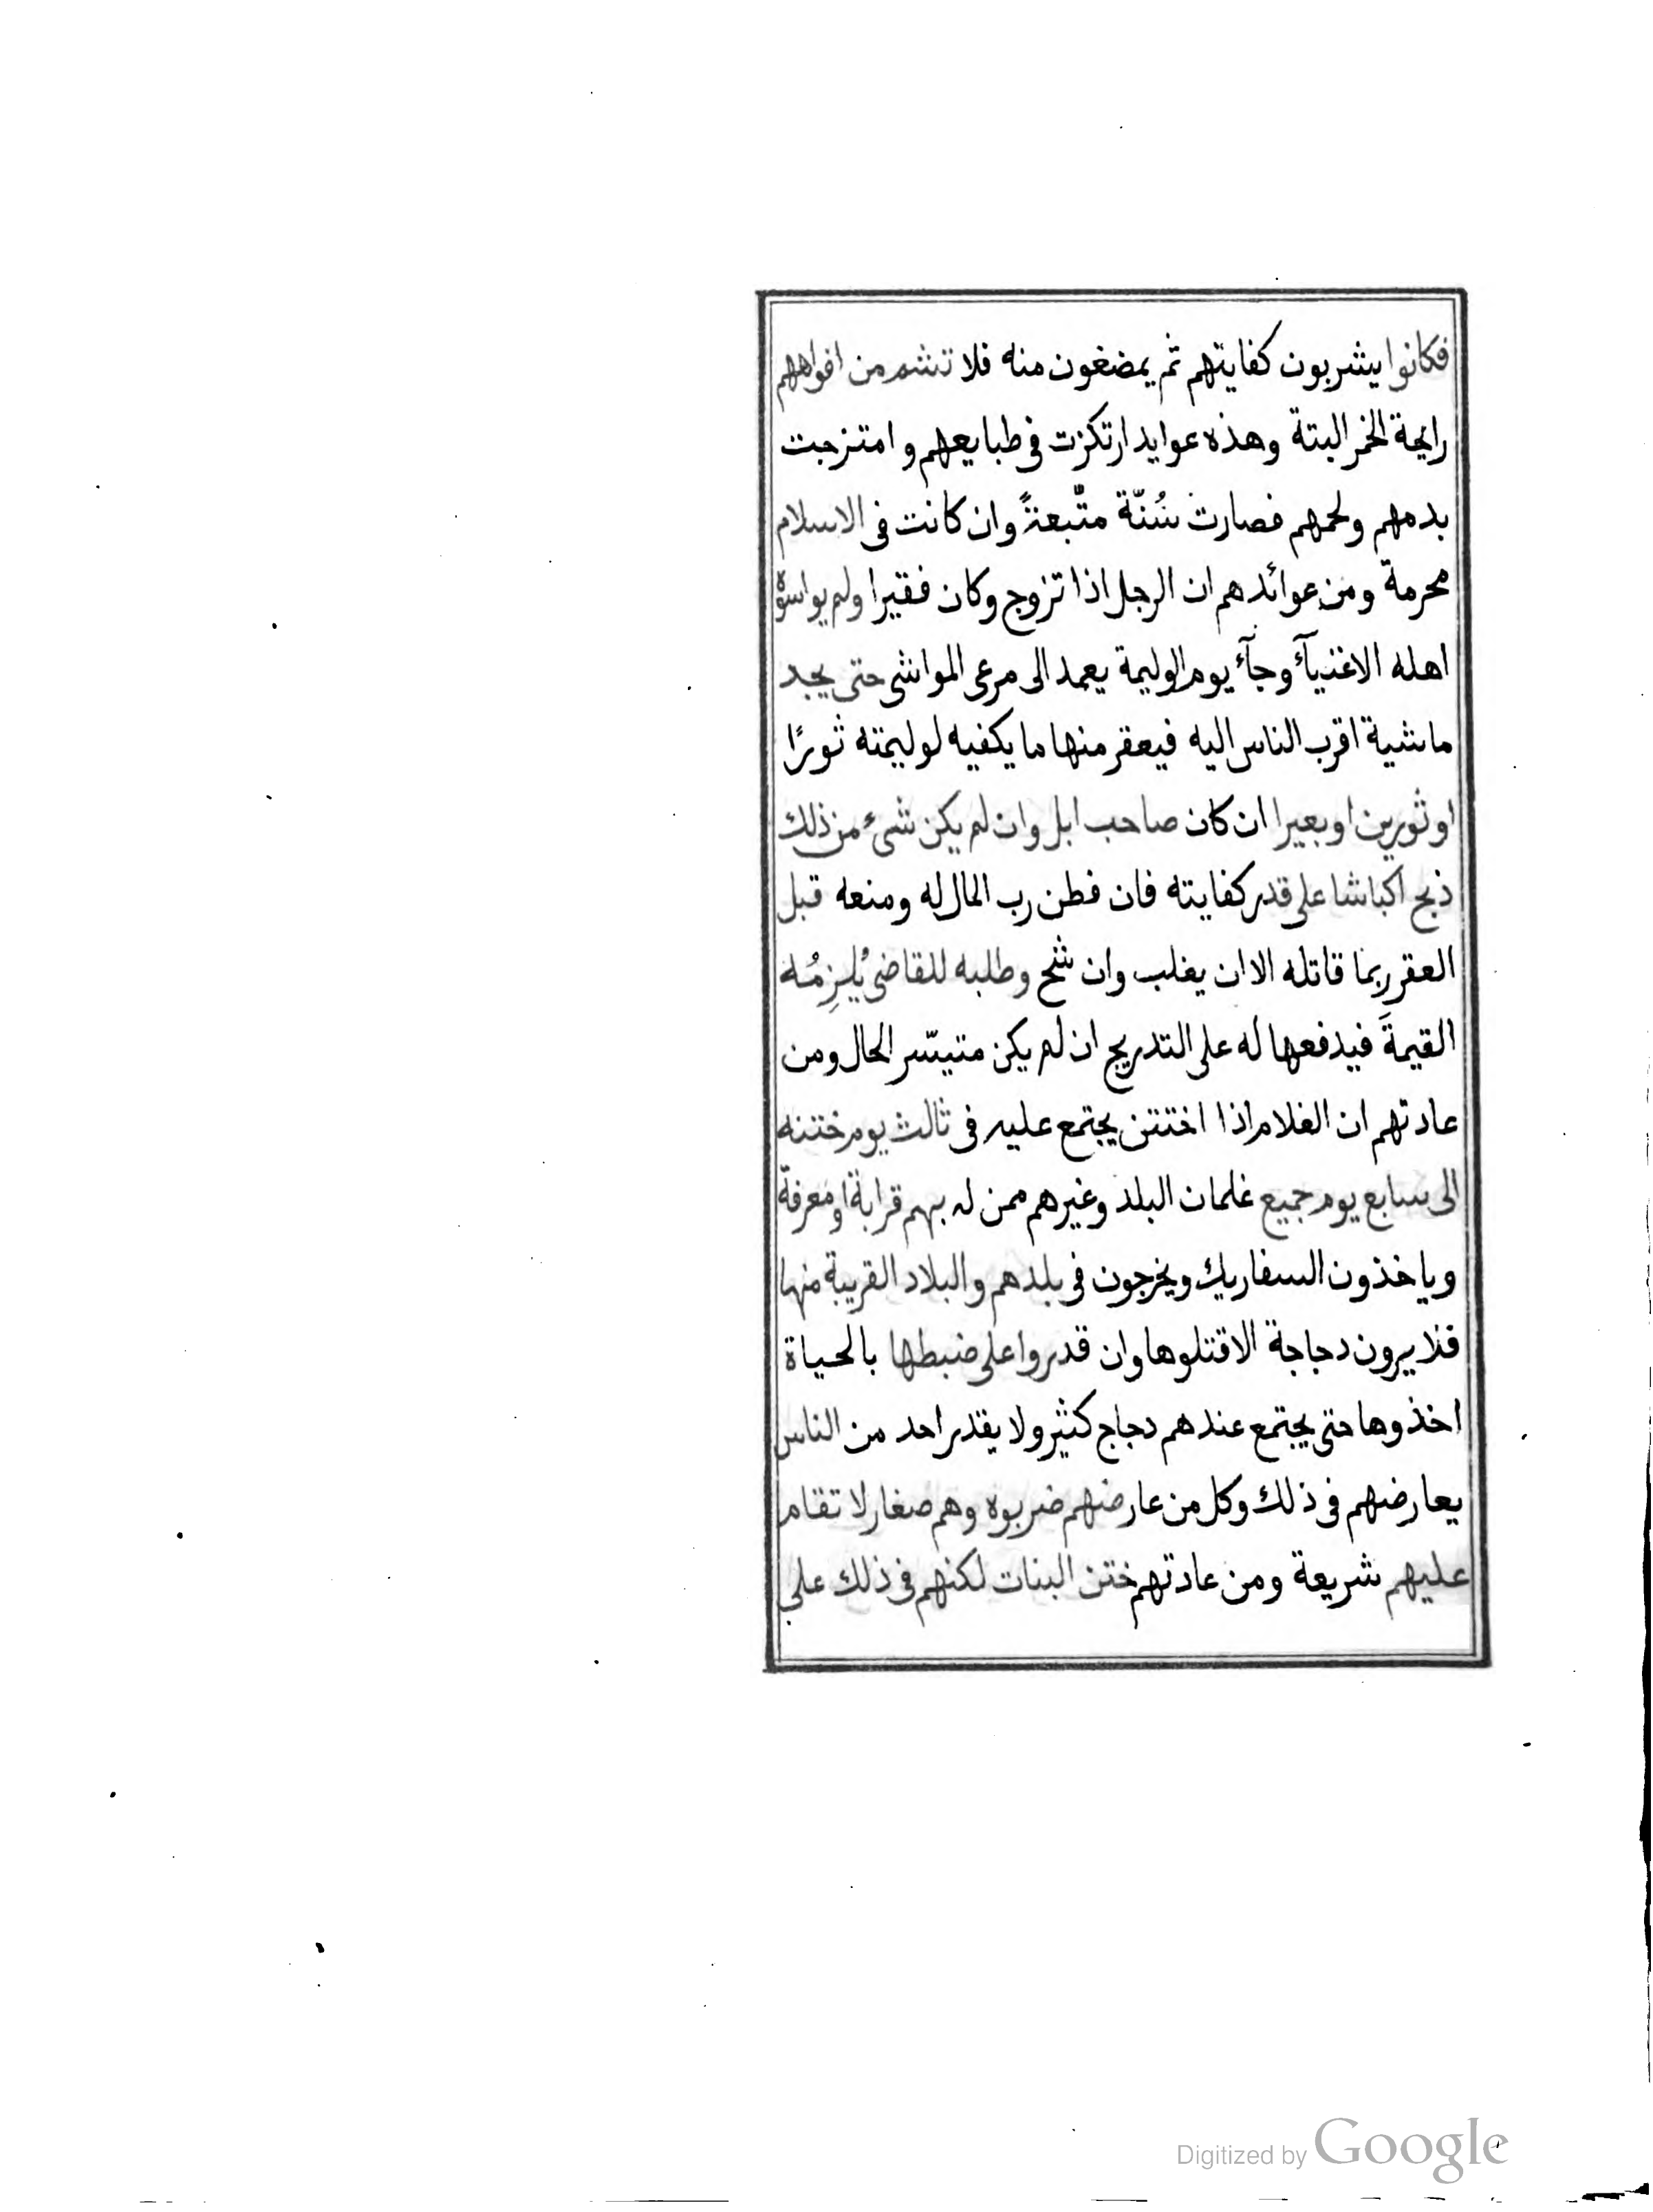 فكانوا يشربون كفايتهم ثم يمضغون منه فلا تشم من افواههم
رايحة الخمر البتة وهذه عوايد ارتكزت فى طبايعهم وامتزجت
بدمهم ولحمهم فصارت سُنّة متّبعةً وان كانت فى الاسلام
محرمة ومن عوائدهم ان الرجل اذا تزوج وكان فقيرا ولم يواسوه
اهله الاغنيآء وجآء يوم الوليمة يعمد الى مرعى المواشى حتى يجد
ماشية اقرب الناس اليه فيعقر منها ما يكفيه لوليمته ثورًا
او ثورين او بعيرا ان كان صاحب ابل وان لم يكن شىء من ذلك
ذبح اكباشا على قدر كفايته فان فطن رب المال له ومنعه قبل
العقر ربما قاتله الا ان يغلب وان شح وطلبه للقاضى يُلزِمُه
القيمةَ فيدفعها له على التدريج ان لم يكن متيسّر الحال ومن
عادتهم ان الغلام اذا اختتن يجتمع عليه فى ثالث يوم ختنه
الى سابع يوم جميع غلمان البلد وغيرهم ممن له بهم قرابة او معرفة
وياخذون السفاريك ويخرجون فى بلدهم والبلاد القريبة منها
فلا يرون دجاجة الا قتلوها وان قدروا على ضبطها بالحياة
اخذوها حتى يجتمع عندهم دجاج كثير ولا يقدر احد من الناس
يعارضهم فى ذلك وكل من عارضهم ضربوه وهم صغار لا تقام
عليهم شريعة ومن عادتهم ختن البنات لكنهم فى ذلك على
Digitized by Google